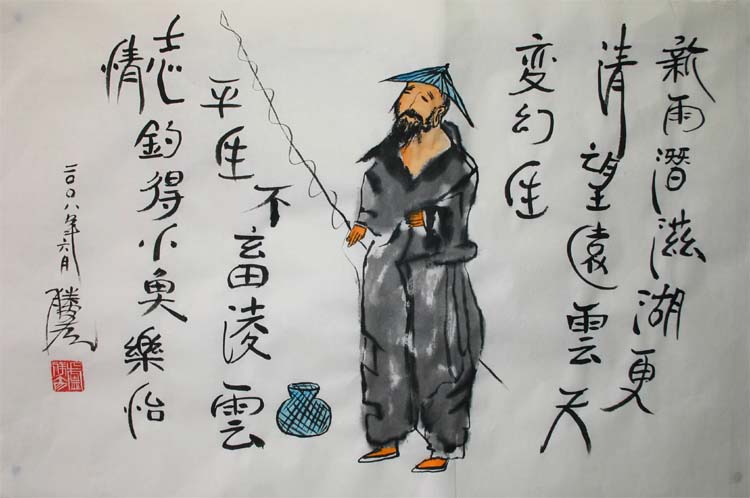 新雨潛滋湖更
清望遠雲天
変幻生
平生不畜凌雲
志釣得小魚樂怡
情
二〇〇八年六月
勝